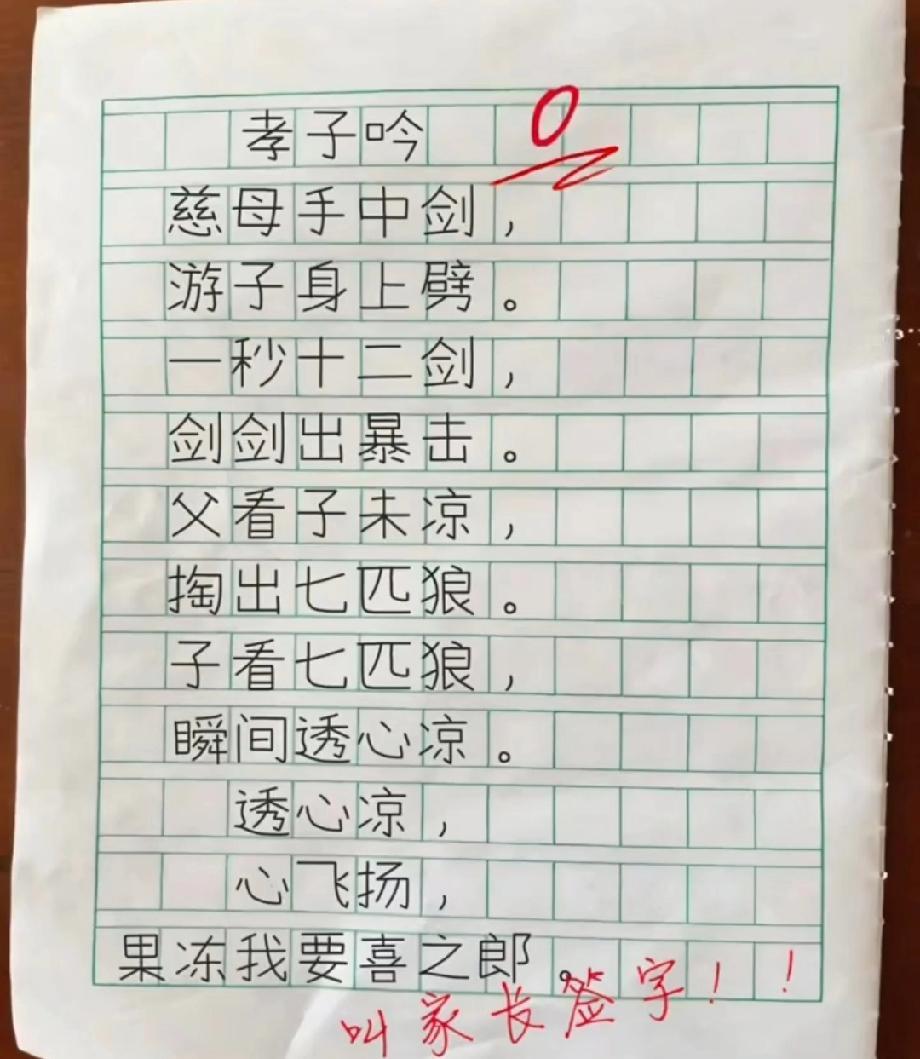 孝子吟 0
慈母手中剑，
游子身上劈。
一秒十二剑，
剑剑出暴击。
父看子未凉，
掏出七匹狼。
子看七匹狼，
瞬间透心凉。
透心凉，
心飞扬，
果冻我要喜之郎。
叫家长签字！！